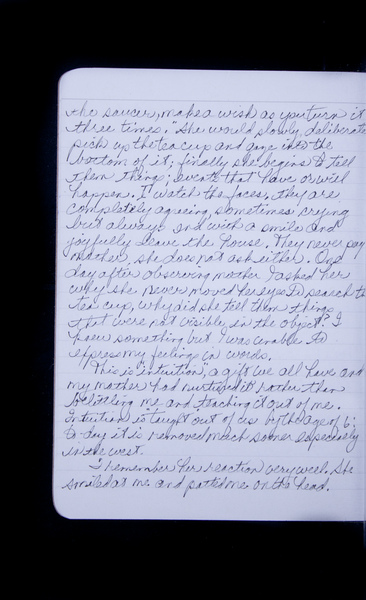 the saucer, make a wish as you turn it
three times." She would slowly, deliberate
pick up the tea cup and gaze into the
bottom of it; finally she begins to tell
them things; events that have or will
happen. I watch the faces, they are
completely agreeing, sometimes crying
but always end with a smile and
joyfully leave the house. They never pay
mother, she does not ask either. One
day after observing mother I asked her
why she never moved her eyes to search the
tea cup, why did she tell them things
that were not visible in the object? I
knew something but I was unable to
express my feelings in words.
This is "intuition", a gift we all have and
my mother had nurtured it rather than
belittling me and teaching it out of me.
Intuition is "taught" out of us by the age of 6;
to-day it is removed much sooner especially
in the west.
I remember her reaction very well. She
smiled at me and patted me on the head.